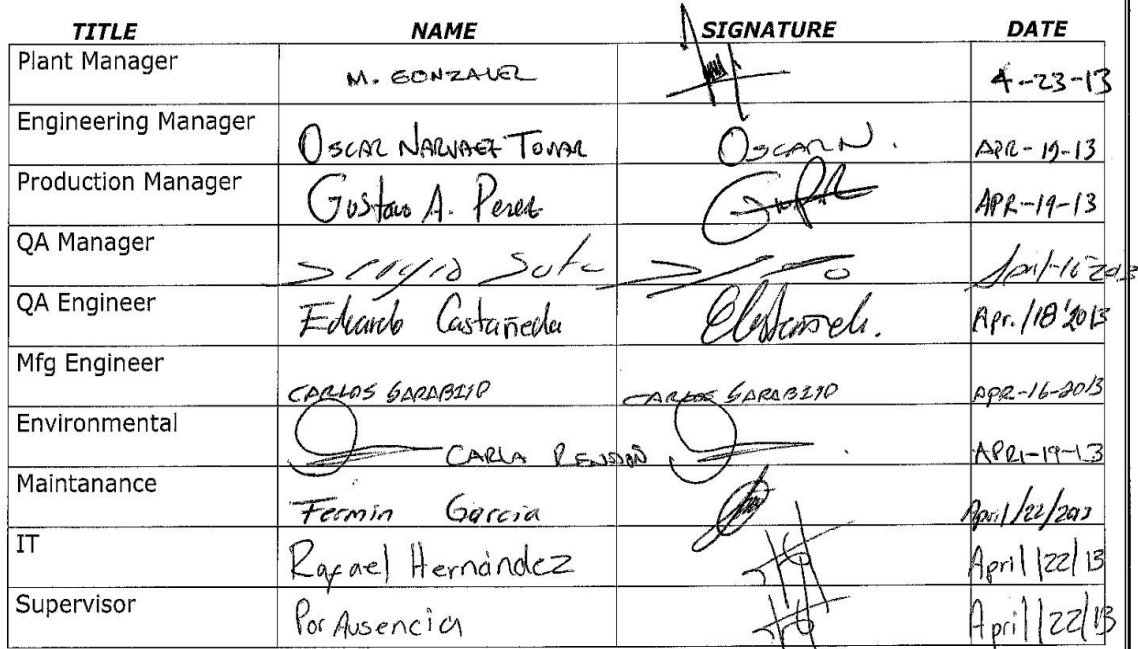 TITLE NAME SIGNATURE DATE
Plant Manager M. GONZALEZ 4-23-13
Engineering Manager OSCAR NARVAEZ TOVAR OSCAR N. APR-19-13
Production Manager Gustavo A. Perez APR-19-13
QA Manager Sergio Soto
QA Engineer Eduardo Castañeda Apr./18'2013
Mfg Engineer CARLOS SARABIA CARLOS SARABIA APR-16-2013
Environmental CARLA APRI-19-13
Maintanance Fermin Garcia April/22/2013
IT Rafael Hernández April/22/13
Supervisor Por Ausencia April/22/13